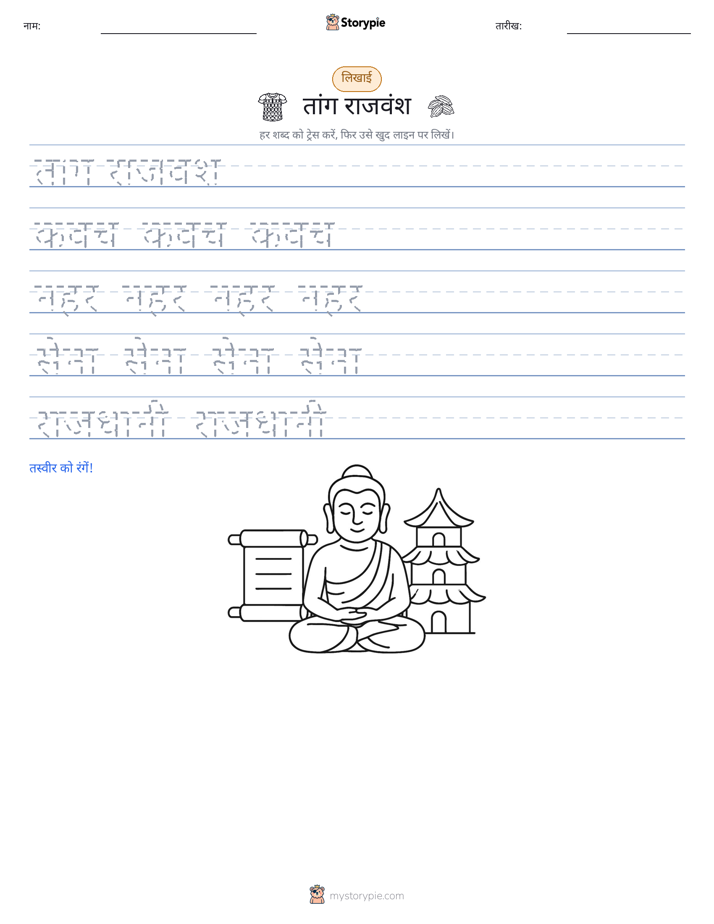 नाम:
Storypie
तारीख:
लिखाई
तांग राजवंश
हर शब्द को ट्रेस करें, फिर उसे खुद लाइन पर लिखें।
तांग राजवंश
कवच कवच कवच
नहर नहर नहर नहर
सेना सेना सेना सेना
राजधानी राजधानी
तस्वीर को रंगें!
mystorypie.com